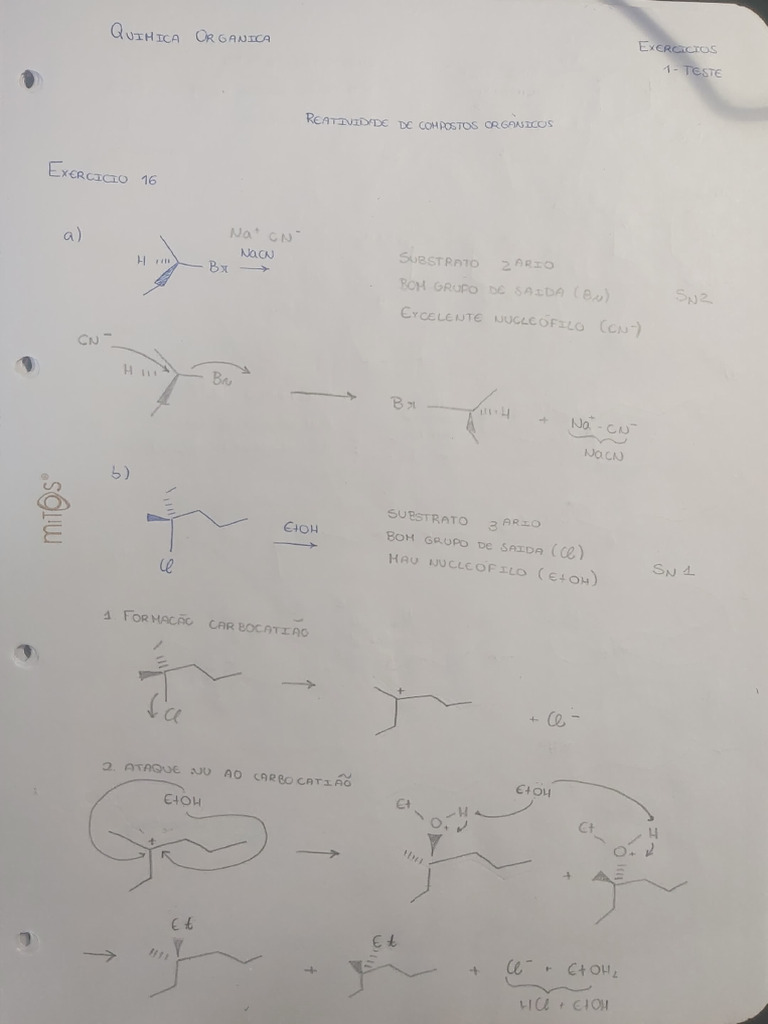 QUIMICA ORGANICA
EXERCICIOS
1-TESTE
REATIVIDADE DE COMPOSTOS ORGÂNICOS
EXERCICIO 16
a)
Na⁺ CN⁻
H Br NaCN
SUBSTRATO 2ARIO
BOM GRUPO DE SAIDA (Br)
SN2
EXCELENTE NUCLEÓFILO (CN⁻)
CN⁻
H Br
Br H + Na⁺-CN⁻
NaCN
b)
mitos®
Cl
EtOH
SUBSTRATO 3ARIO
BOM GRUPO DE SAIDA (Cl)
MAU NUCLEÓFILO (EtOH)
SN1
1 FORMAÇÃO CARBOCATIÃO
Cl
+
+ Cl⁻
2 ATAQUE NU AO CARBOCATIÃO
EtOH
+
Et O+ H
EtOH
+
Et O+ H
Et
+
Et
+ Cl⁻ + EtOH₂
HCl + EtOH